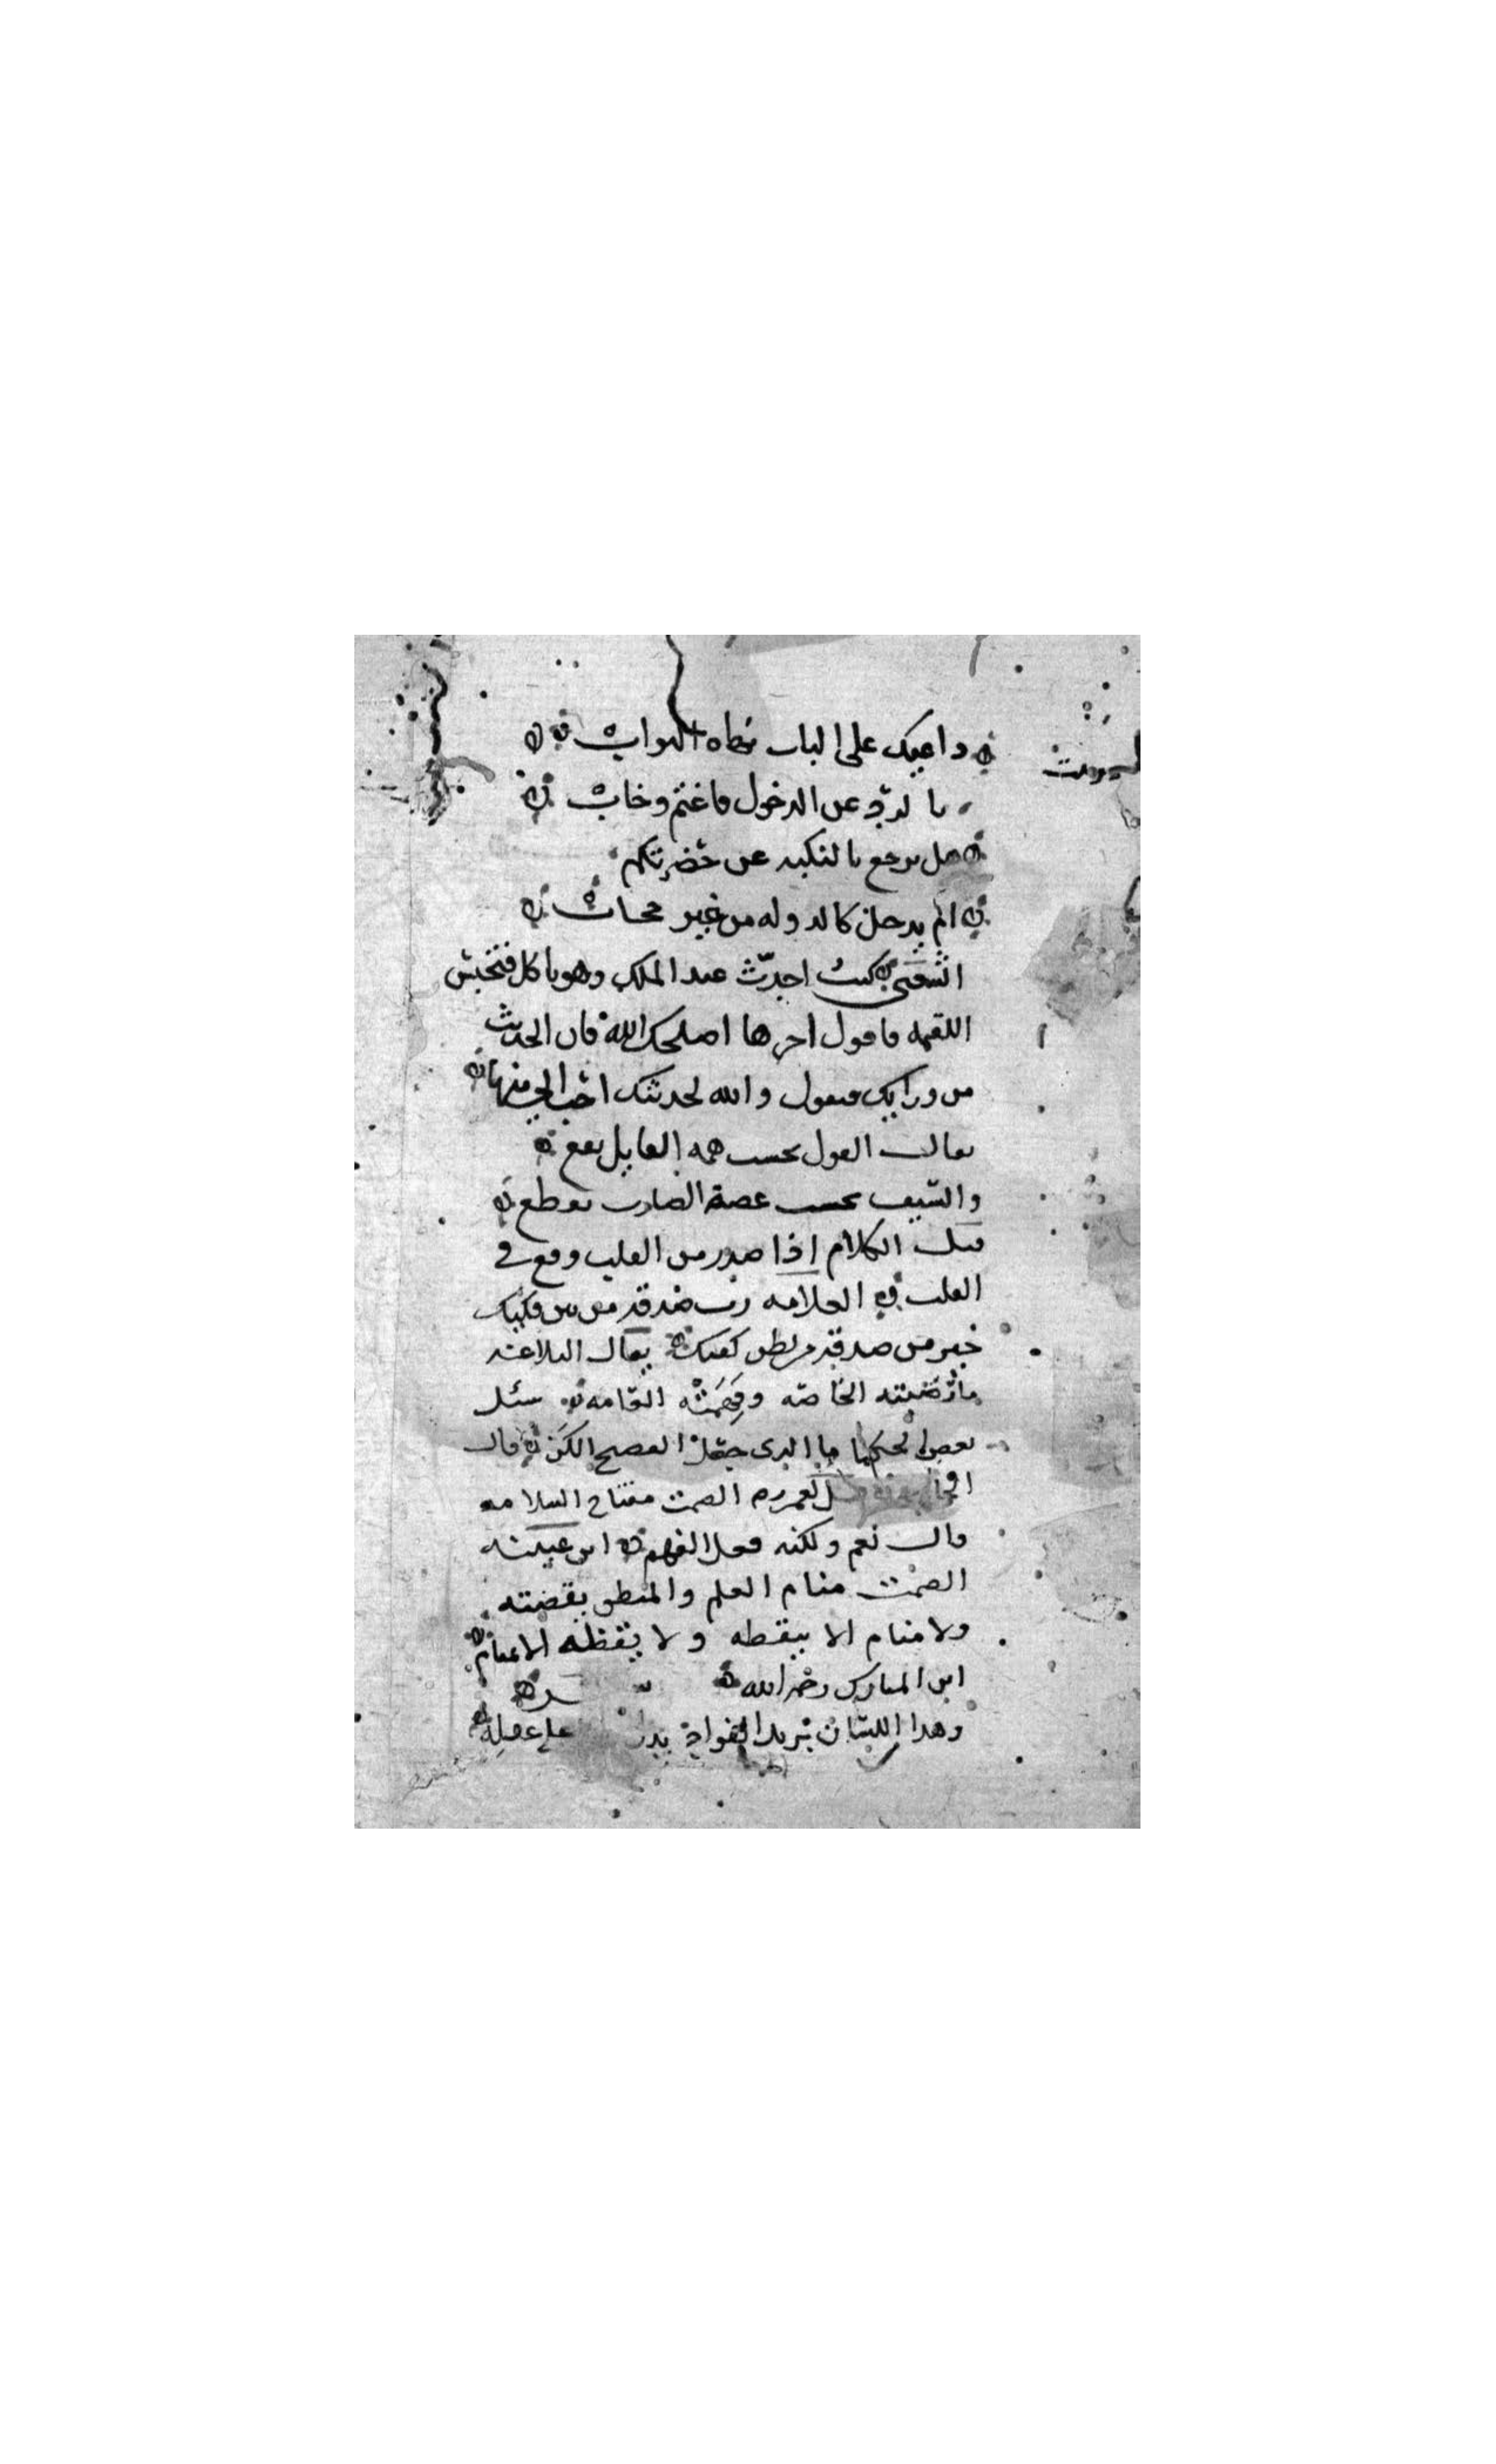 واعبيك على الباب البواب
بالرد عن الدخول فاغتم وخاب
هل يرجع بالتكيه عن حضرتكم
ام يدخل كالدوله من غير حجاب
الشعبي كنت احدث عبد الملك وهو ياكل فتحبس
اللقمه فاقول اجرها اصلحك الله فان الحديث
من ورايك فيقول والله لحديثك احب الي منها
يقال القول بحسب همه القايل يقع
والسيف بحسب عضد الضارب يقطع
قيل الكلام اذا صدر من القلب وقع في
القلب العلامه رب صدقه من بين فكيك
خير من صدقه من بطن كفيك يقال البلاغه
ما رضيته الخاصه وفهمته العامه سئل
بعض الحكما ما الذي جعل الفصيح الكن قال
لعمر رضه الصمت مفتاح السلامه
قال نعم ولكنه قفل الفهم ابن عيينه
الصمت منام العلم والمنطق يقضته
ولا منام الا بيقظه ولا يقظه الا بمنام
ابن المبارك رحمه الله
وهذا اللسان بريد الفواد يدل على عقله